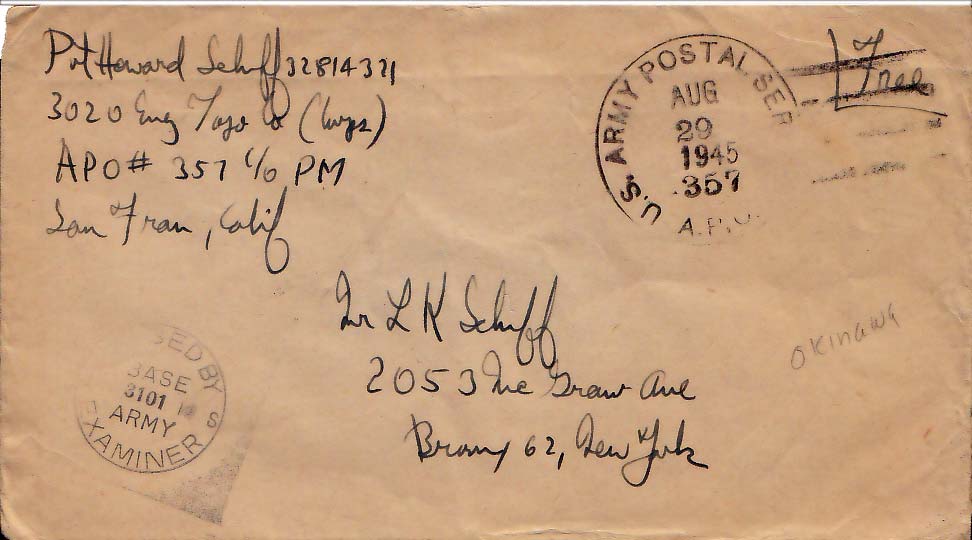 Pvt Howard Schiff 32814321
3020 Eng Topo Co (Corps)
APO# 357 c/o PM
San Fran, Calif
U.S. ARMY POSTAL SER
AUG
29
1945
357
A.P.O.
Free
Mr L K Schiff
2053 Mc Graw Ave
Bronx 62, New York
OKINAWA
SED BY
BASE
3101
ARMY
EXAMINER
S